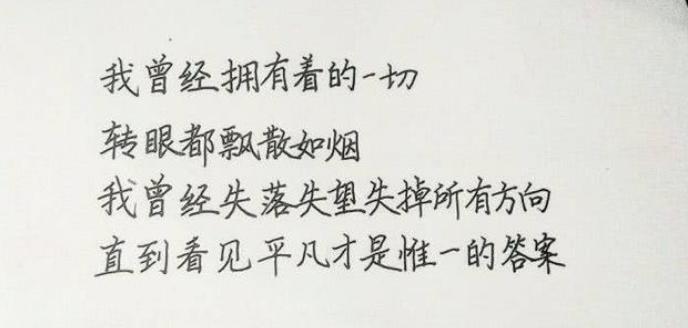 我曾经拥有着的一切
转眼都飘散如烟
我曾经失落失望失掉所有方向
直到看见平凡才是惟一的答案